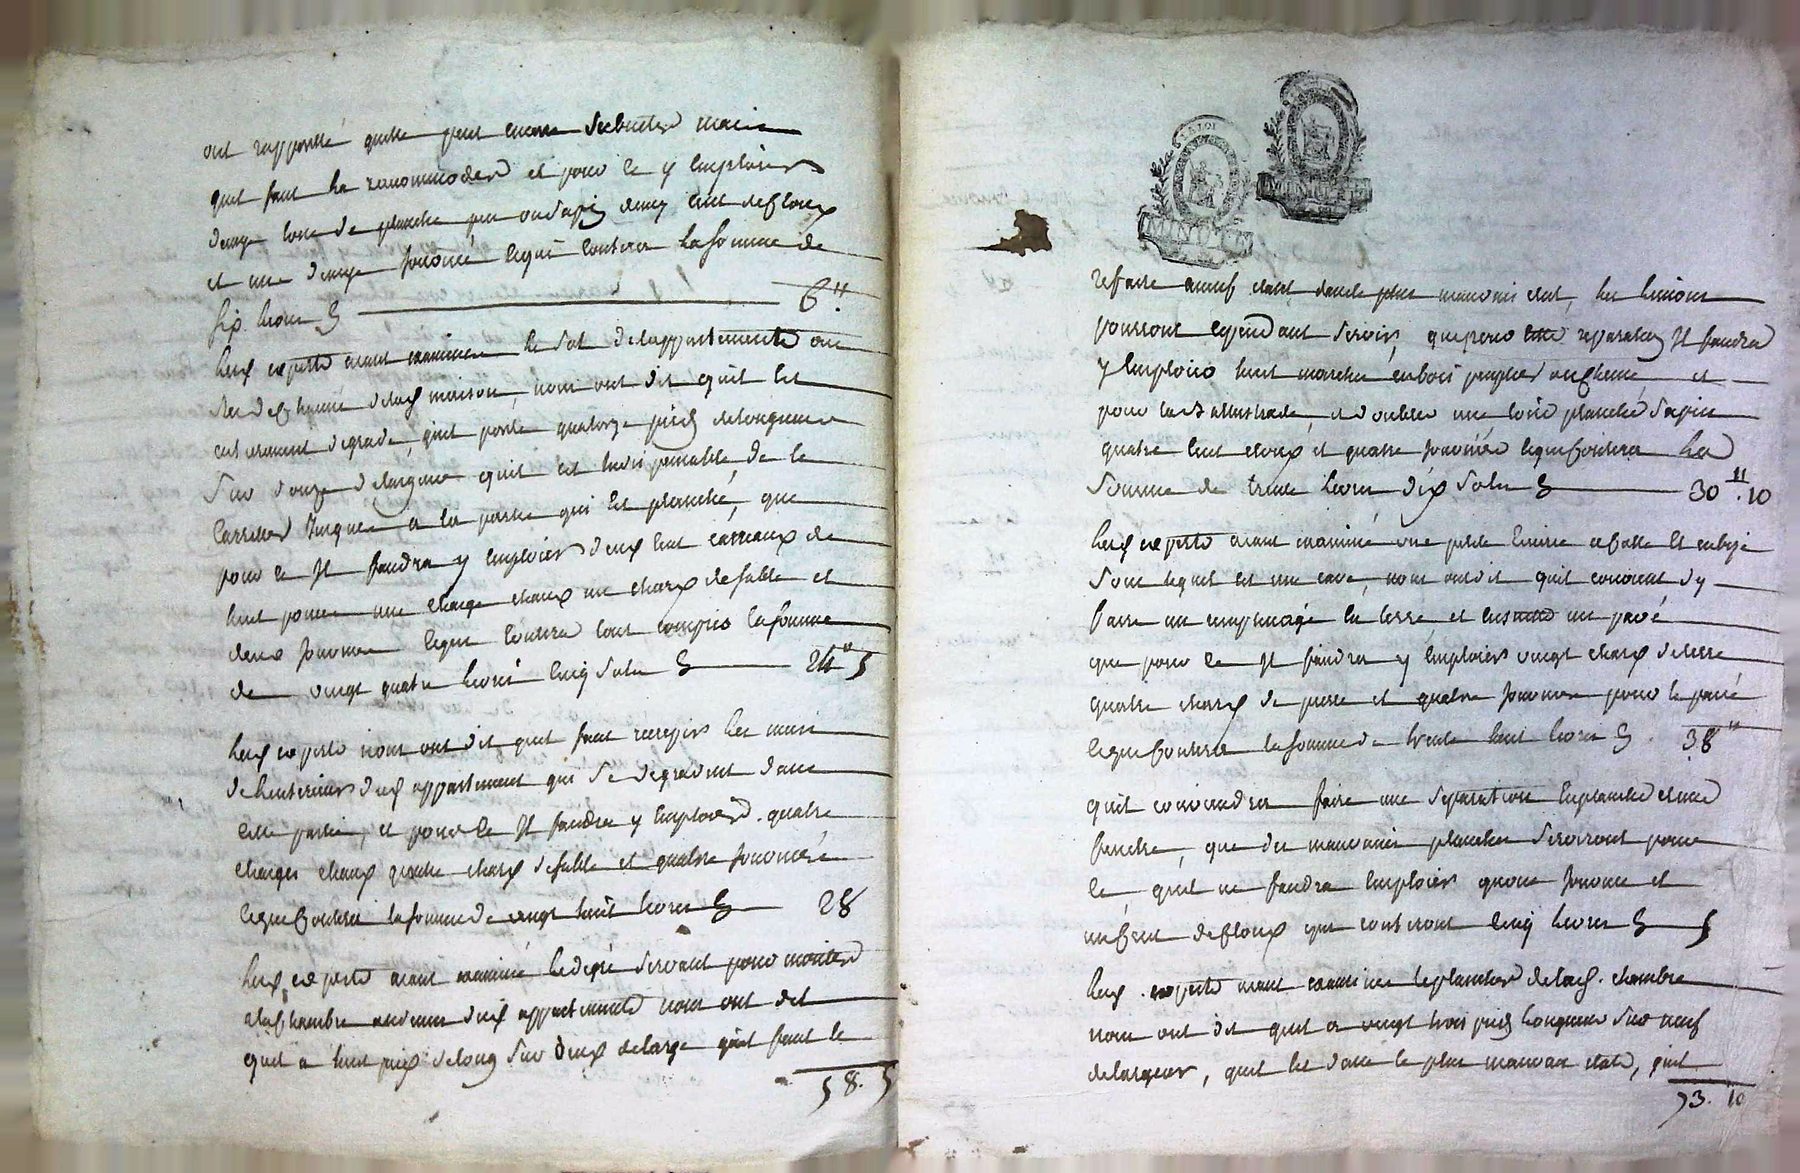 ont rapporté quelle peut encore subsister mais
quil faut la racommoder et pour ce y emploier
demye toise de planche peu ou sapin demy cent de cloux
et une demye journée ce qui coutera la somme de
six livres 6"
les experts aiant examiné le sol de l'appartement au
rez de chaussée de la maison, nous ont dit quil est
entierement degradé, quil porte quatorze pieds de longueur
sur douze de largeur quil est indispensable de le
carreler jusques a la partie qui est planché, que
pour ce il faudra y emploier deux cent carreaux de
huit pouces une charge chaux un chars de sable et
deux journées ce qui coutera tout compris la somme
de vingt quatre livres cinq sols 24" 5
les experts nous ont dit quil faut recrepir les murs
de l'interieur dud appartement qui se degradent dans
cette partie, et pour ce il faudra y emploier quatre
charges chaux quatre chars de sable et quatre journées
ce que coutera la somme de vingt huit livres 28
les experts aiant examiné le degré servant pour monter
a la chambre au dessus dud appartement nous ont dit
quil a huit pieds de long sur deux de large quil faut le
58. 5
MINUTE
MINUTE
refaire a neuf etant dans le plus mauvais etat, les limons
pourront cependant servir, que pour cette reparation il faudra
y emploier huit marches en bois peuplier ou chene, et
pour la balustrade, et doubler une toise planche sapin
quatre cent cloux et quatre journées ce que coutera la
somme de trente livres dix sols 30" .10
les experts aiant examiné une petite cuisine a cotté et en bize
sous lequel est une cave, nous ont dit quil convient d'y
faire un remplissage en terre, et ensuitte un pavé
que pour ce il faudra y emploier vingt chars de terre
quatre chars de pierre et quatre journées pour le pavé
ce que coutera la somme de trente huit livres 38"
quil conviendra faire une separation en planche et une
fenetre, que des mauvaises planches serviront pour
ce, quil ne faudra emploier qu'une journée et
un cent de cloux que couteront cinq livres 5
les experts aiant examiné le plancher de lad. chambre
nous ont dit quil a vingt trois pieds longueur sur neuf
de largeur, quil est dans le plus mauvais etat, quil
73. 10